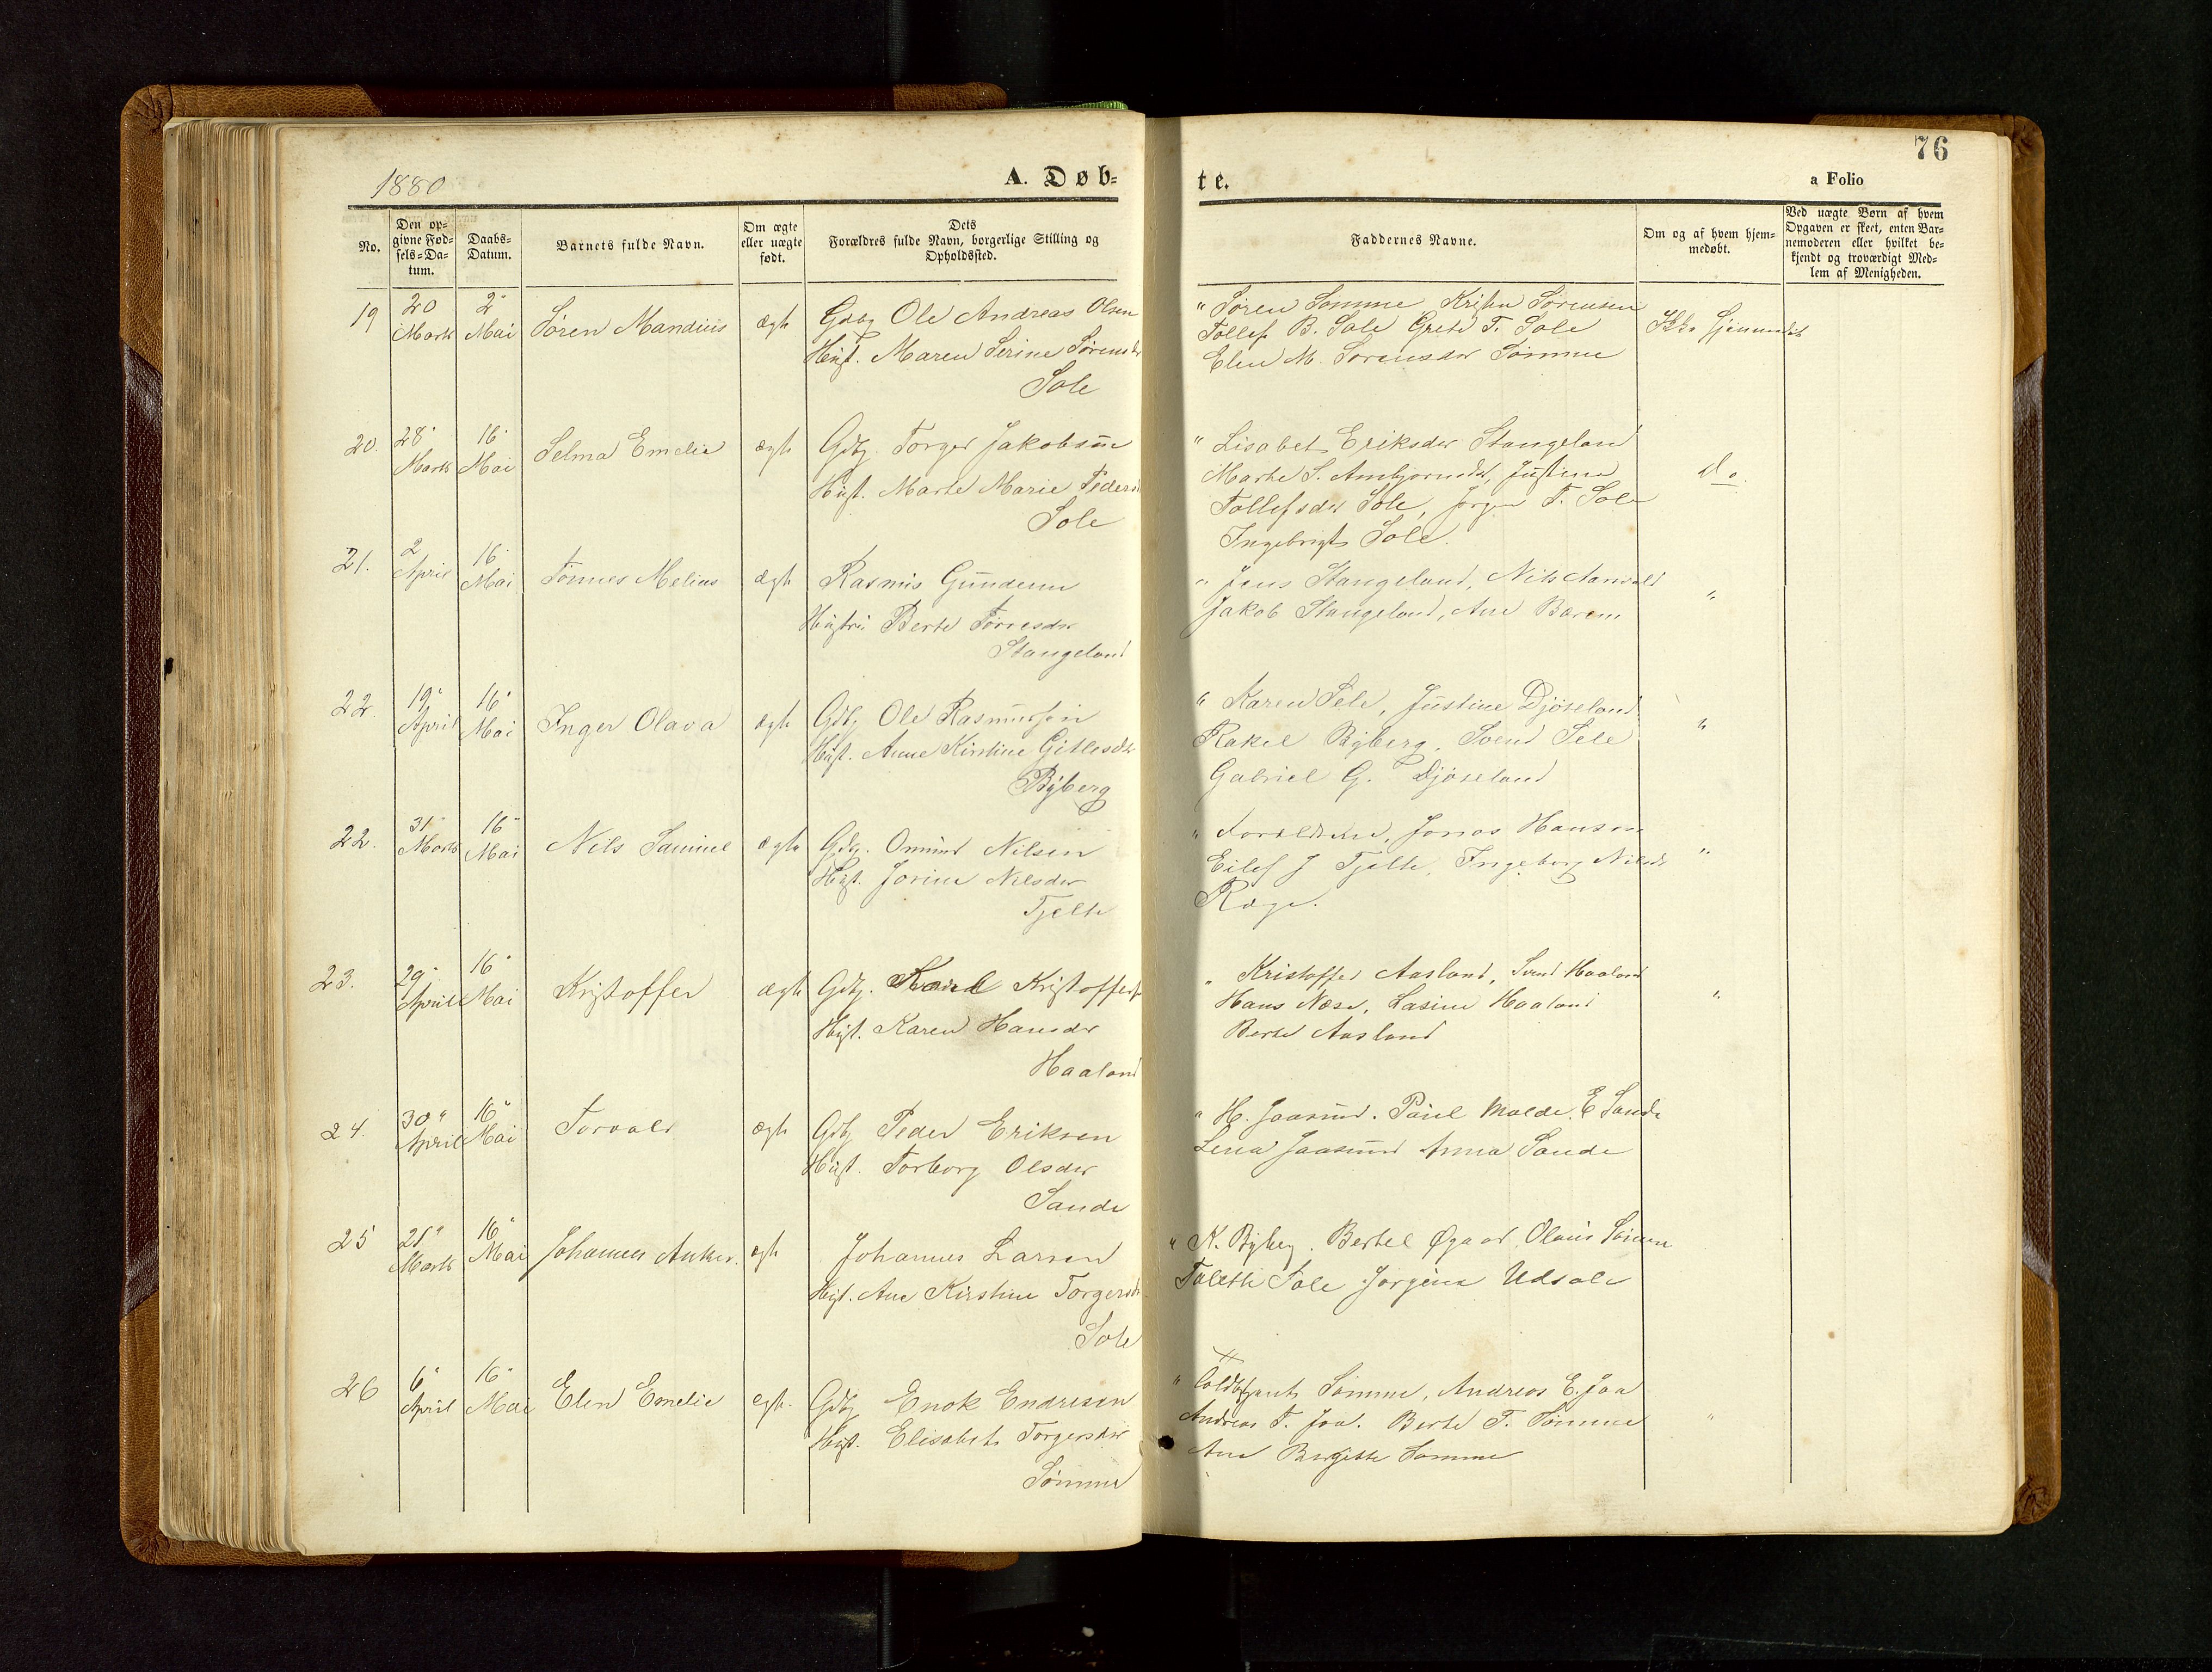 76
1880
A. Døb=
te.
a Folio
No.
Den op=
givne Fød=
sels=Da=
tum.
Daabs=
Datum.
Barnets fulde Navn.
Om ægte
eller uægte
født.
Dets
Forældres fulde Navn, borgerlige Stilling og
Opholdssted.
Faddernes Navne.
Om og af hvem hjem=
medøbt.
Ved uægte Børn af hvem
Opgaven er skeet, enten Bar=
nemoderen eller hvilket be=
kjendt og troværdigt Med=
lem af Menigheden.
19 20 Marts 2 Mai Søren Mandius ægte
Gdbg Ole Andreas Olsen
Hust. Maren Serine Sørensdr
Sole
" Søren Sømme
Tollef B. Sole Grete T. Sole
Elen M. Sørensdr Sømme
20. 28 Marts 16 Mai Selma Emelie ægte
Gdbg. Torger Jakobsen
Hust. Marte Marie Peders
Sole
" Lisabet Eriksdr Stangeland
Marte S. Justine
Tollefsdr Sole, Jørgen T. Sole
Ingebrigt Sole.
do.
21. 2 April 16 Mai Tønnes Melius ægte
Rasmus
Hustru Berte
Stangeland
" Jens Stangeland, Nils
Jakob Stangeland, Ane
"
22 19 April 16 Mai Inger Olava ægte
Gdbg Ole Rasmussen
Hust. Anne Kirstine Gitlesdr
Byberg
" Karen Sele, Justine Djøseland
Rakel Byberg, Svend Sele
Gabriel G. Djøseland
"
22. 31 Marts 16 Mai Nils Samuel ægte
Gdbg. Omund Nilsen
Hust. Jorine Nilsdr
Tjelte
" Forældrene, Jonas Hansen
Eilef J Tjelte, Ingeborg Nilsdr
Ræge.
"
23. 29 April 16 Mai Kristoffer ægte
Gdbg. Karl Kristoffers
Hust. Karen Hansdr
Haaland
" Kristoffer Aasland, Svend Haaland
Hans Næse, Lasine Haaland
Berte Aasland
"
24. 30 April 16 Mai Torvald ægte
Gdbg Peder Eriksen
Hust. Torborg Olsdr
Sande
" H. Jaasund. Paul Malde. E Sande
Lena Jaasund Anna Sande
25 25 Marts 16 Mai Johannes Anker. ægte
Johannes Larsen
Hust. Ane Kirstine Torgersdr
Sole
" K. Byberg. Bertel Øgaard Olaus
Sole Jørgine Udsole
26 6 April 16 Mai Elen Emelie ægte
Gdbg Enok Endresen
Hust. Elisabet Torgersdr
Sømme
" Sømme, Andreas E. Joa
Andreas T. Joa. Berte T. Sømme
Ane Birgitte Sømme
"